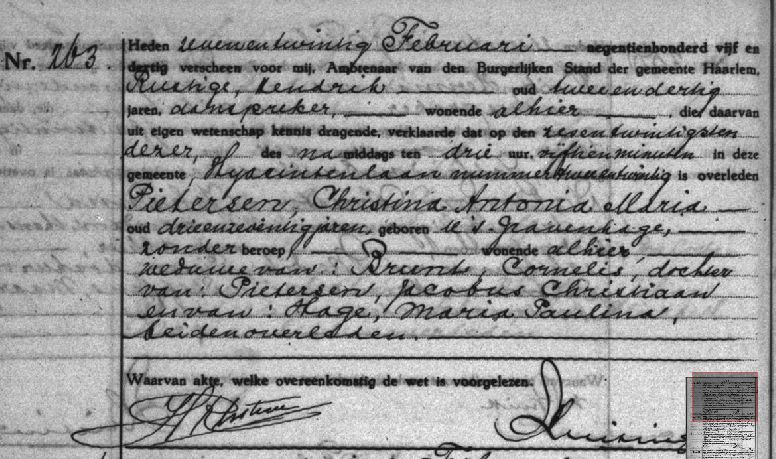 Nr. 263.
Heden zevenentwintig Februari negentienhonderd vijf en
dertig verscheen voor mij, Ambtenaar van den Burgerlijken Stand der gemeente Haarlem,
Rustige, Hendrik oud tweeendertig
jaren, aanspreker, wonende alhier die daarvan
uit eigen wetenschap kennis dragende, verklaarde dat op den zesentwintigsten
dezer, des namiddags ten drie uur, vijftien minuten in deze
gemeente, Hyacintenlaan nummer tweeentwintig is overleden
Pietersen, Christina Antonia Maria
oud drieenzeventig jaren, geboren te 's Gravenhage,
zonder beroep, wonende alhier
weduwe van: Brunt, Cornelis, dochter
van: Pietersen, Jacobus Christiaan
en van: Hage, Maria Paulina,
beiden overleden.
Waarvan akte, welke overeenkomstig de wet is voorgelezen.